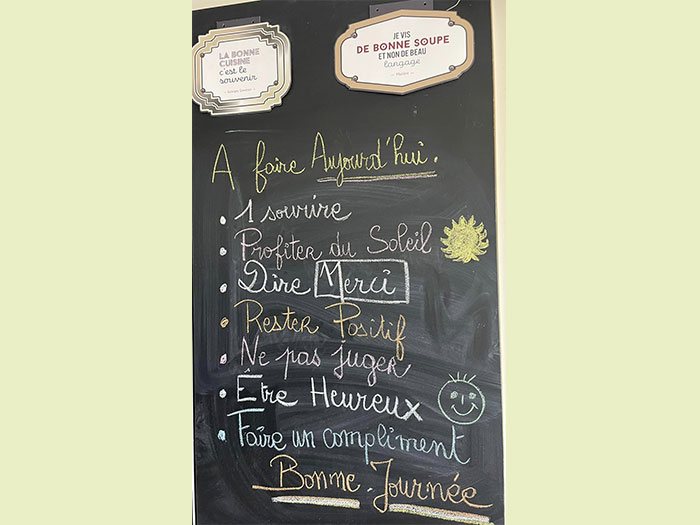 LA BONNE
CUISINE
c'est le
souvenir
JE VIS
DE BONNE SOUPE
ET NON DE BEAU
langage
— Molière —
A faire Aujourd'hui.
• 1 sourire
• Profiter du Soleil
• Dire Merci
• Rester Positif
• Ne pas juger
• Être Heureux
• Faire un compliment
Bonne. Journée